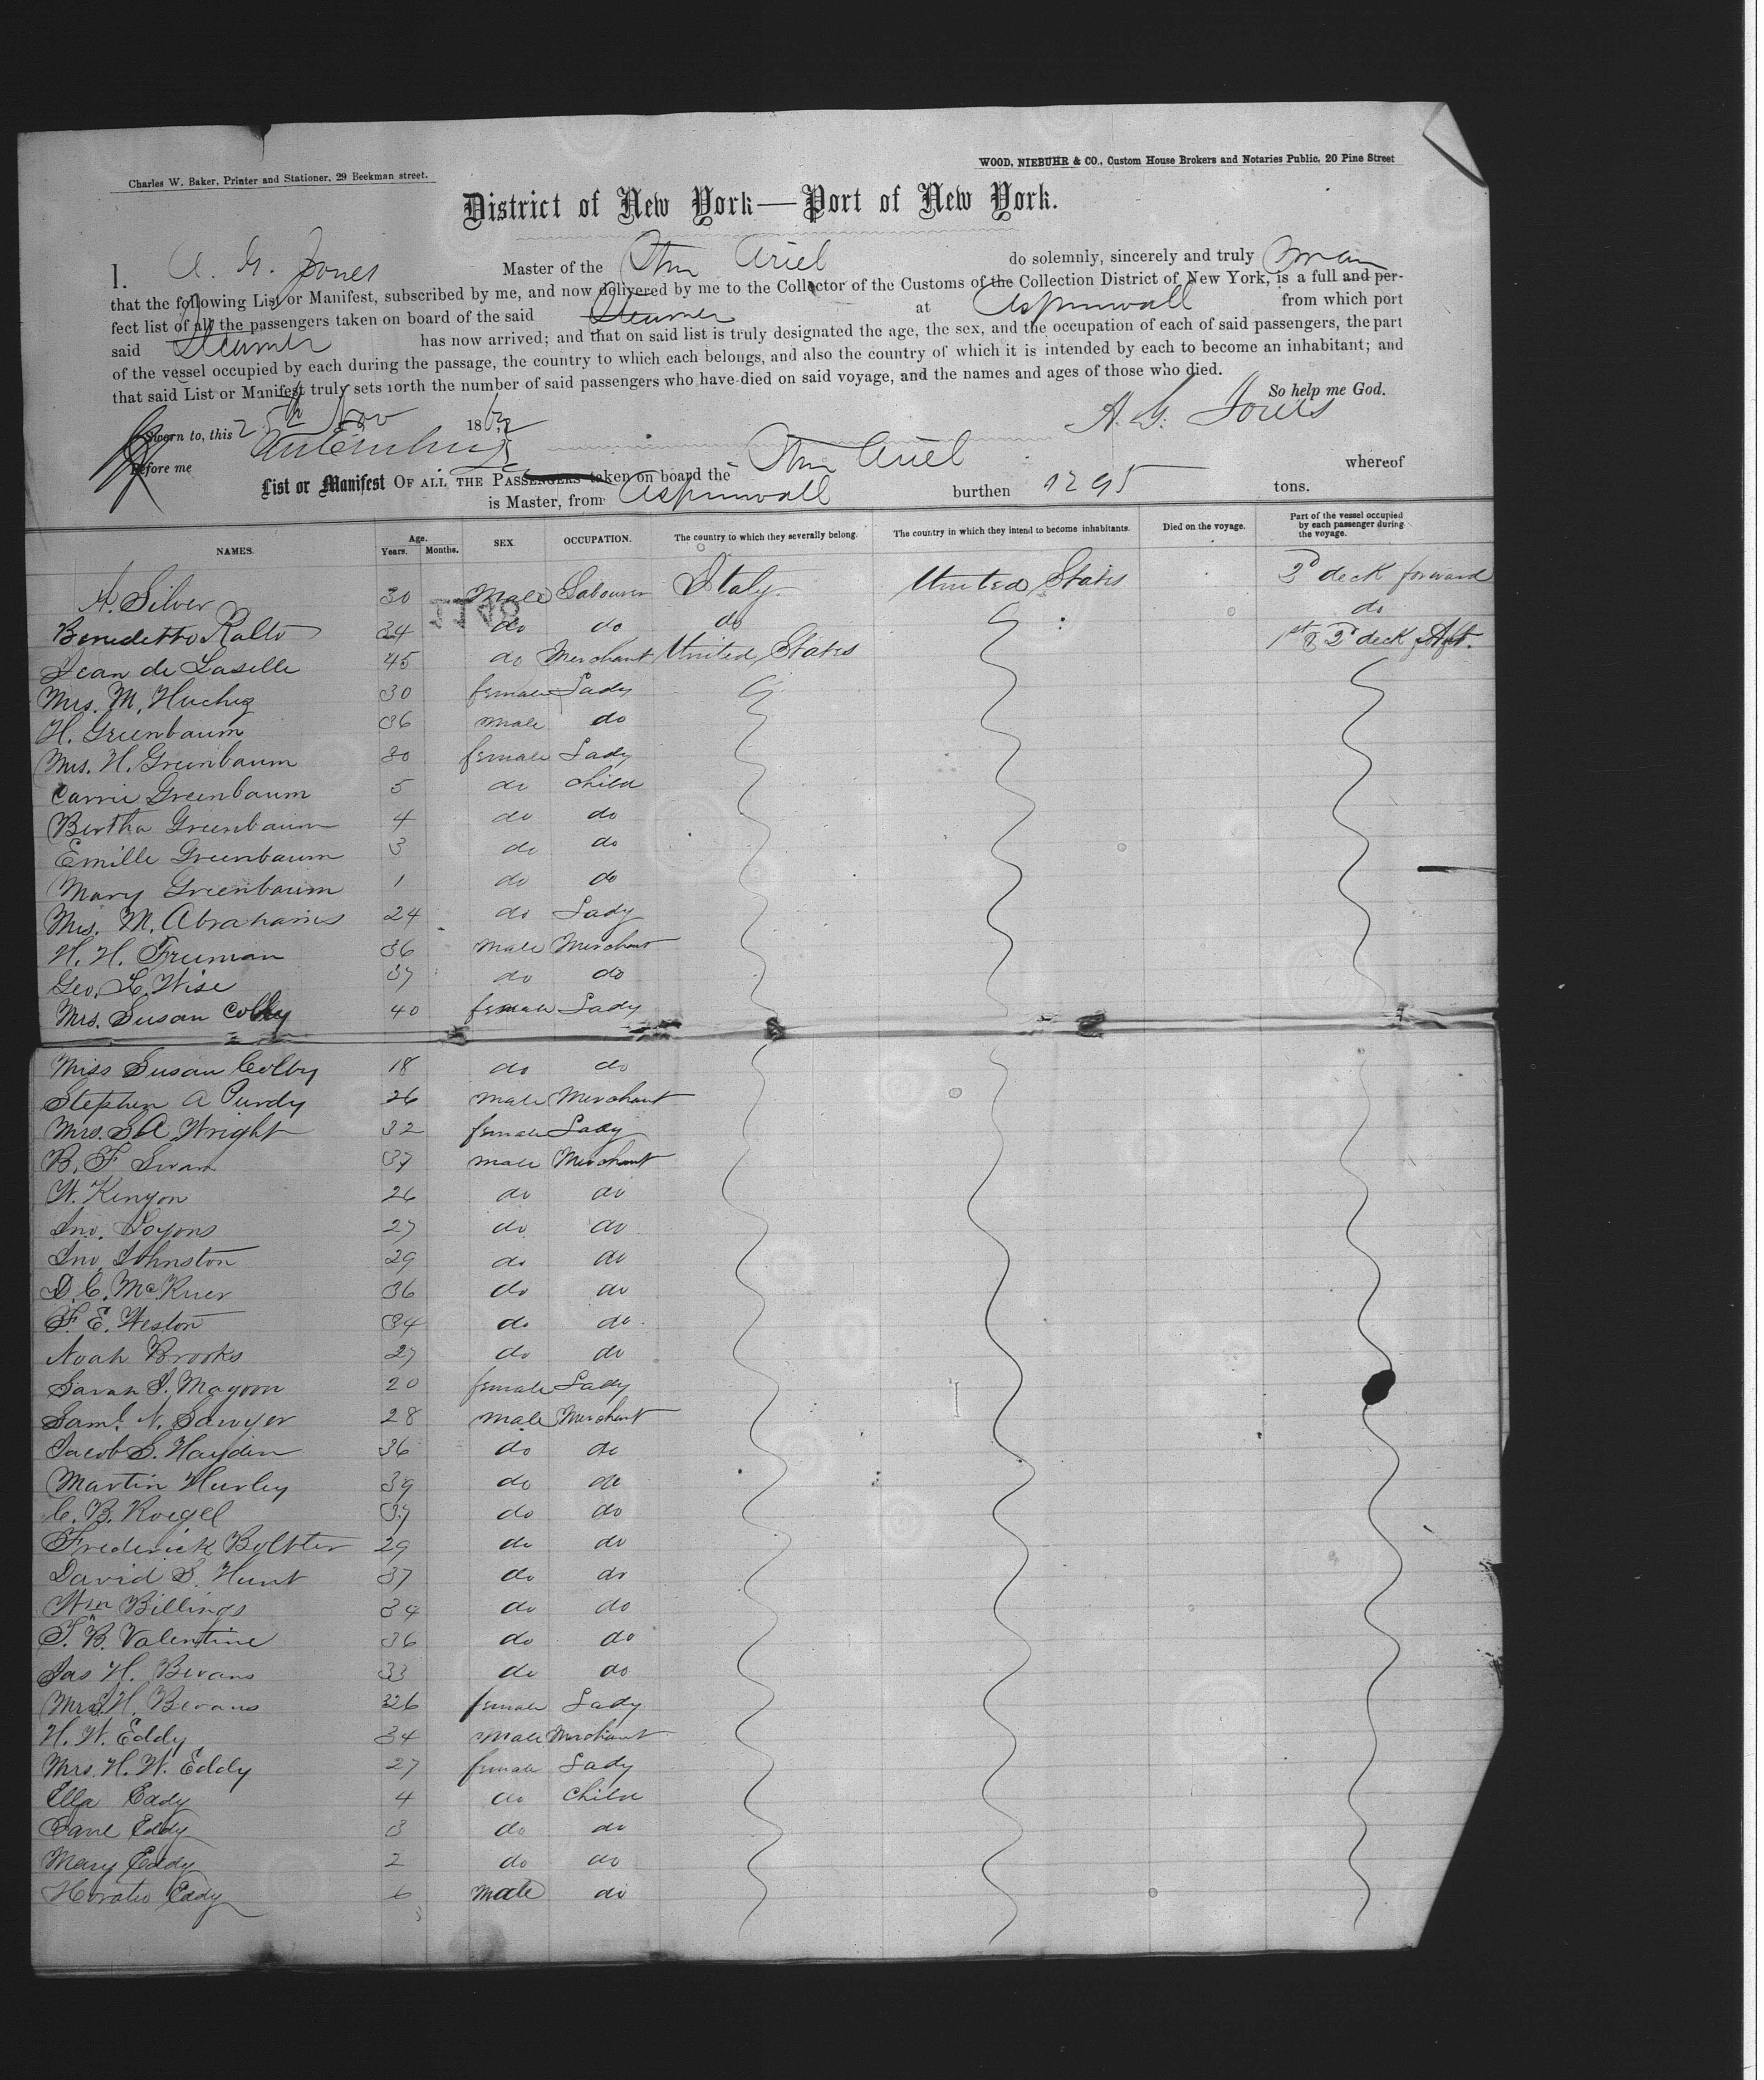 Charles W. Baker, Printer and Stationer, 29 Beekman street.
WOOD, NIEBUHR & CO., Custom House Brokers and Notaries Public, 20 Pine Street
District of New York—Port of New York.
I, A. G. Jones Master of the Stm Ariel do solemnly, sincerely and truly swear
that the following List or Manifest, subscribed by me, and now delivered by me to the Collector of the Customs of the Collection District of New York, is a full and per-
fect list of all the passengers taken on board of the said Steamer at Aspinwall from which port
said Steamer has now arrived; and that on said list is truly designated the age, the sex, and the occupation of each of said passengers, the part
of the vessel occupied by each during the passage, the country to which each belongs, and also the country of which it is intended by each to become an inhabitant; and
that said List or Manifest truly sets forth the number of said passengers who have died on said voyage, and the names and ages of those who died.
So help me God.
Sworn to, this 25th Nov 1862 A. G. Jones
Before me
List or Manifest OF ALL THE PASSENGERS taken on board the Stm Ariel whereof
is Master, from Aspinwall burthen 1295 tons.
NAMES. Age. Years. Months. SEX. OCCUPATION. The country to which they severally belong. The country in which they intend to become inhabitants. Died on the voyage. Part of the vessel occupied by each passenger during the voyage.
A. Silver 30 Male Labourer Italy United States 2d deck forward
Benedetto Ralto 24 do do do do
Jean de Laselle 45 do Merchant United States 1st & 2d deck Aft.
Mrs. M. Huchig 30 female Lady
H. Greenbaum 36 male do
Mrs. H. Greenbaum 30 female Lady
Carrie Greenbaum 5 do child
Bertha Greenbaum 4 do do
Emille Greenbaum 3 do do
Mary Greenbaum 1 do do
Mrs. M. Abrahams 24 do Lady
H. H. Freeman 36 male Merchant
Geo. L. Wise 37 do do
Mrs. Susan Colby 40 female Lady
Miss Susan Colby 18 do do
Stephen A Purdy 26 male Merchant
Mrs. S A Wright 32 female Lady
B. F Swan 37 male Merchant
W. Kenyon 26 do do
Jno. Loyons 27 do do
Jno. Johnston 29 do do
D. C. McKuer 36 do do
F. E. Weston 34 do do
Noah Brooks 27 do do
Sarah J. Magoon 20 female Lady
Saml. N. Sawyer 28 male Merchant
Jacob S. Hayden 36 do do
Martin Hurley 39 do do
C. B. Roegel 37 do do
Frederick Boltter 29 do do
David S. Hunt 37 do do
Wm Billings 34 do do
T. B. Valentine 36 do do
Jas H. Bevans 33 do do
Mrs J. H. Bevans 26 female Lady
H. W. Eddy 34 Male Merchant
Mrs. H. W. Eddy 27 female Lady
Ella Eddy 4 do child
Jane Eddy 3 do do
Mary Eddy 2 do do
Horatio Eddy 6 male do